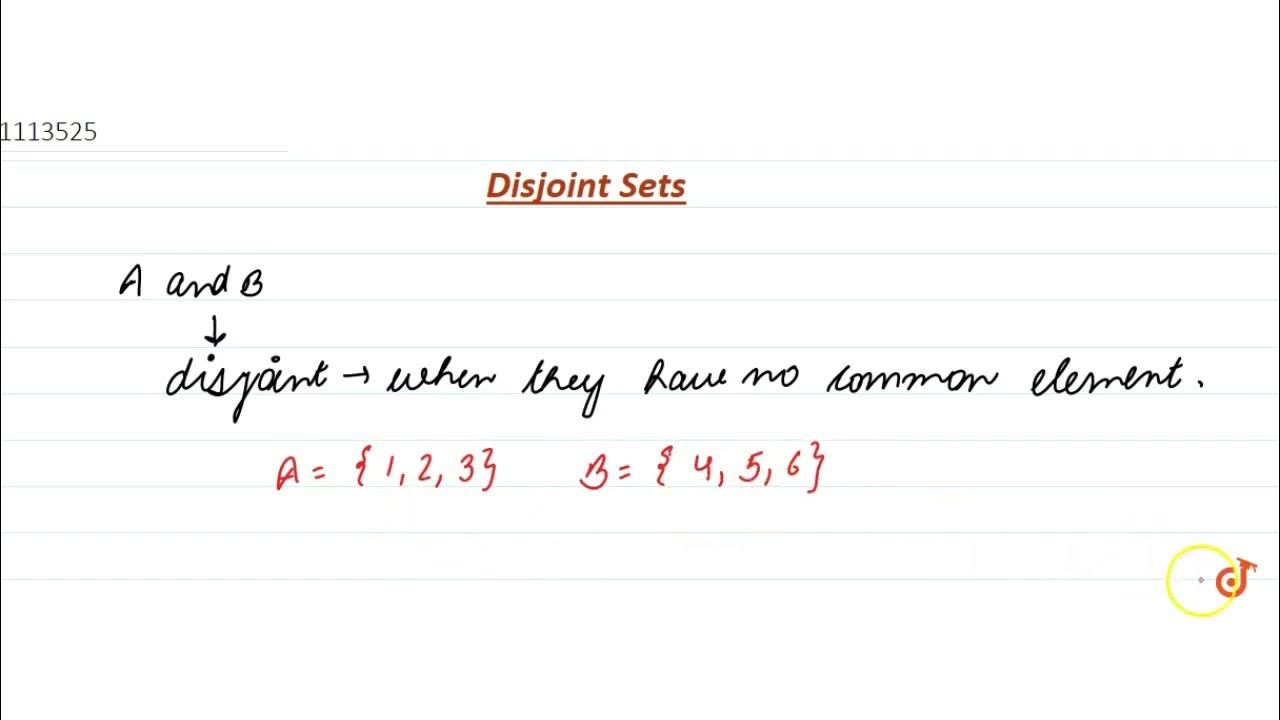 1113525
Disjoint Sets
A and B
↓
disjoint → when they have no common element.
A = {1, 2, 3} B = {4, 5, 6}